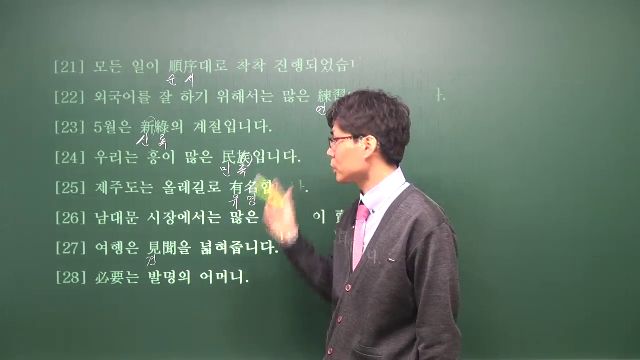 [21] 모든 일이 順序대로 착착 진행되었습
순서
[22] 외국어를 잘 하기 위해서는 많은 練習
연
[23] 5월은 新綠의 계절입니다.
신록
[24] 우리는 흥이 많은 民族입니다.
민족
[25] 제주도는 올레길로 有名합
유명
[26] 남대문 시장에서는 많은 이
[27] 여행은 見聞을 넓혀줍니다.
견
[28] 必要는 발명의 어머니.